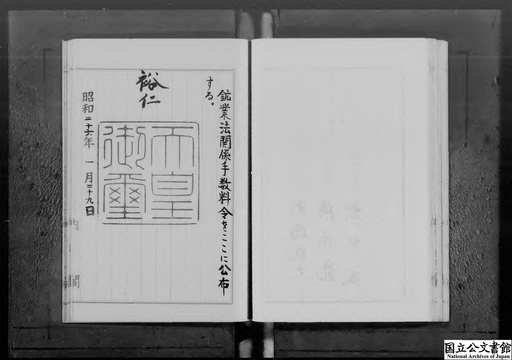 鉱業法関係手数料令をここに公布
する。
裕仁
天皇
御璽
昭和二十六年一月二十九日
内閣
国立公文書館
National Archives of Japan